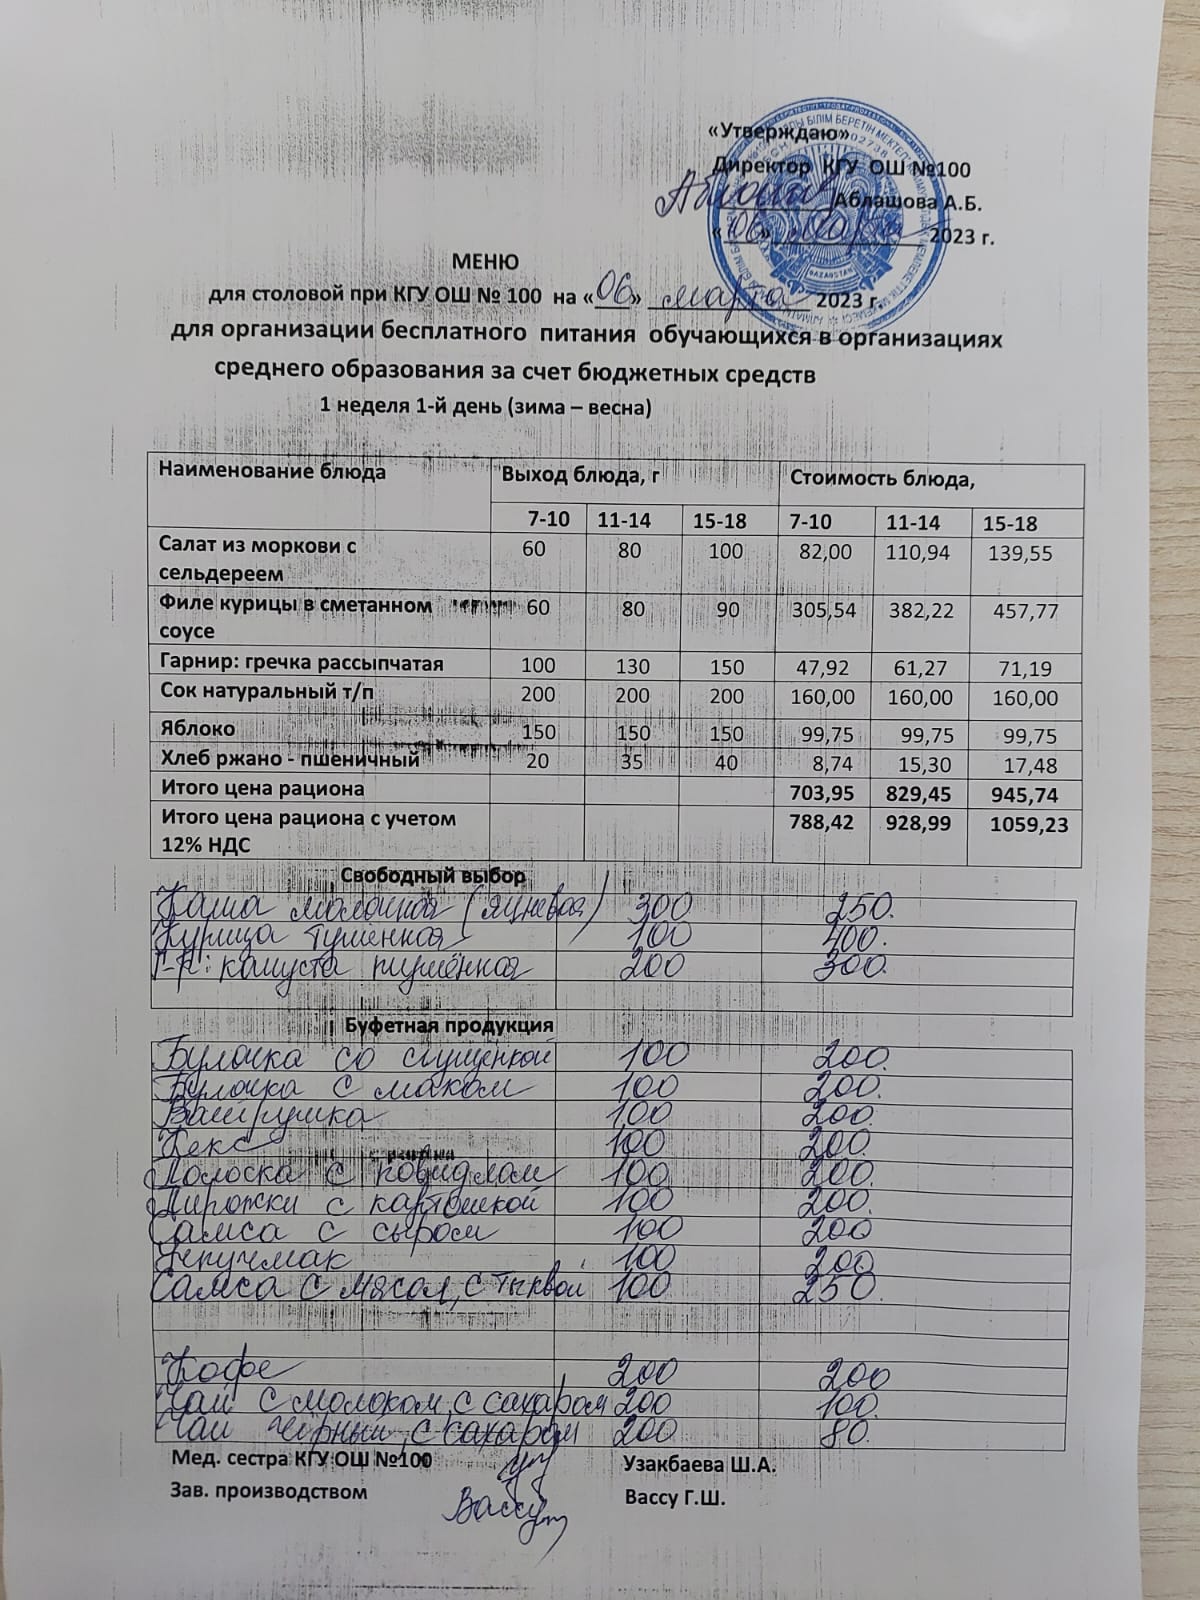 «Утверждаю»
Директор КГУ ОШ №100
Аблашова А.Б.
«06» марта 2023 г.
МЕНЮ
для столовой при КГУ ОШ № 100 на «06» марта 2023 г.
для организации бесплатного питания обучающихся в организациях
среднего образования за счет бюджетных средств
1 неделя 1-й день (зима – весна)
Наименование блюда Выход блюда, г Стоимость блюда,
7-10 11-14 15-18 7-10 11-14 15-18
Салат из моркови с 60 80 100 82,00 110,94 139,55
сельдереем
Филе курицы в сметанном 60 80 90 305,54 382,22 457,77
соусе
Гарнир: гречка рассыпчатая 100 130 150 47,92 61,27 71,19
Сок натуральный т/п 200 200 200 160,00 160,00 160,00
Яблоко 150 150 150 99,75 99,75 99,75
Хлеб ржано - пшеничный 20 35 40 8,74 15,30 17,48
Итого цена рациона 703,95 829,45 945,74
Итого цена рациона с учетом 788,42 928,99 1059,23
12% НДС
Свободный выбор
Каша молочная (ячневая) 300 250.
Курица тушенная 100 400.
Г-р: капуста тушёная 200 300.
Буфетная продукция
Булочка со сгущенкой 100 200.
Булочка с маком 100 200.
Ватрушка 100 200.
Кекс 100 200.
Полоска с повидлом 100 200.
Пирожки с картошкой 100 200.
Самса с сыром 100 200
Учпучмак 100 200
Самса с мясом, с тыквой 100 250.
Кофе 200 200
Чай с молоком, с сахаром 200 100.
Чай чёрный, с сахаром 200 80.
Мед. сестра КГУ ОШ №100 Узакбаева Ш.А.
Зав. производством Вассу Г.Ш.
QAZAQSTAN